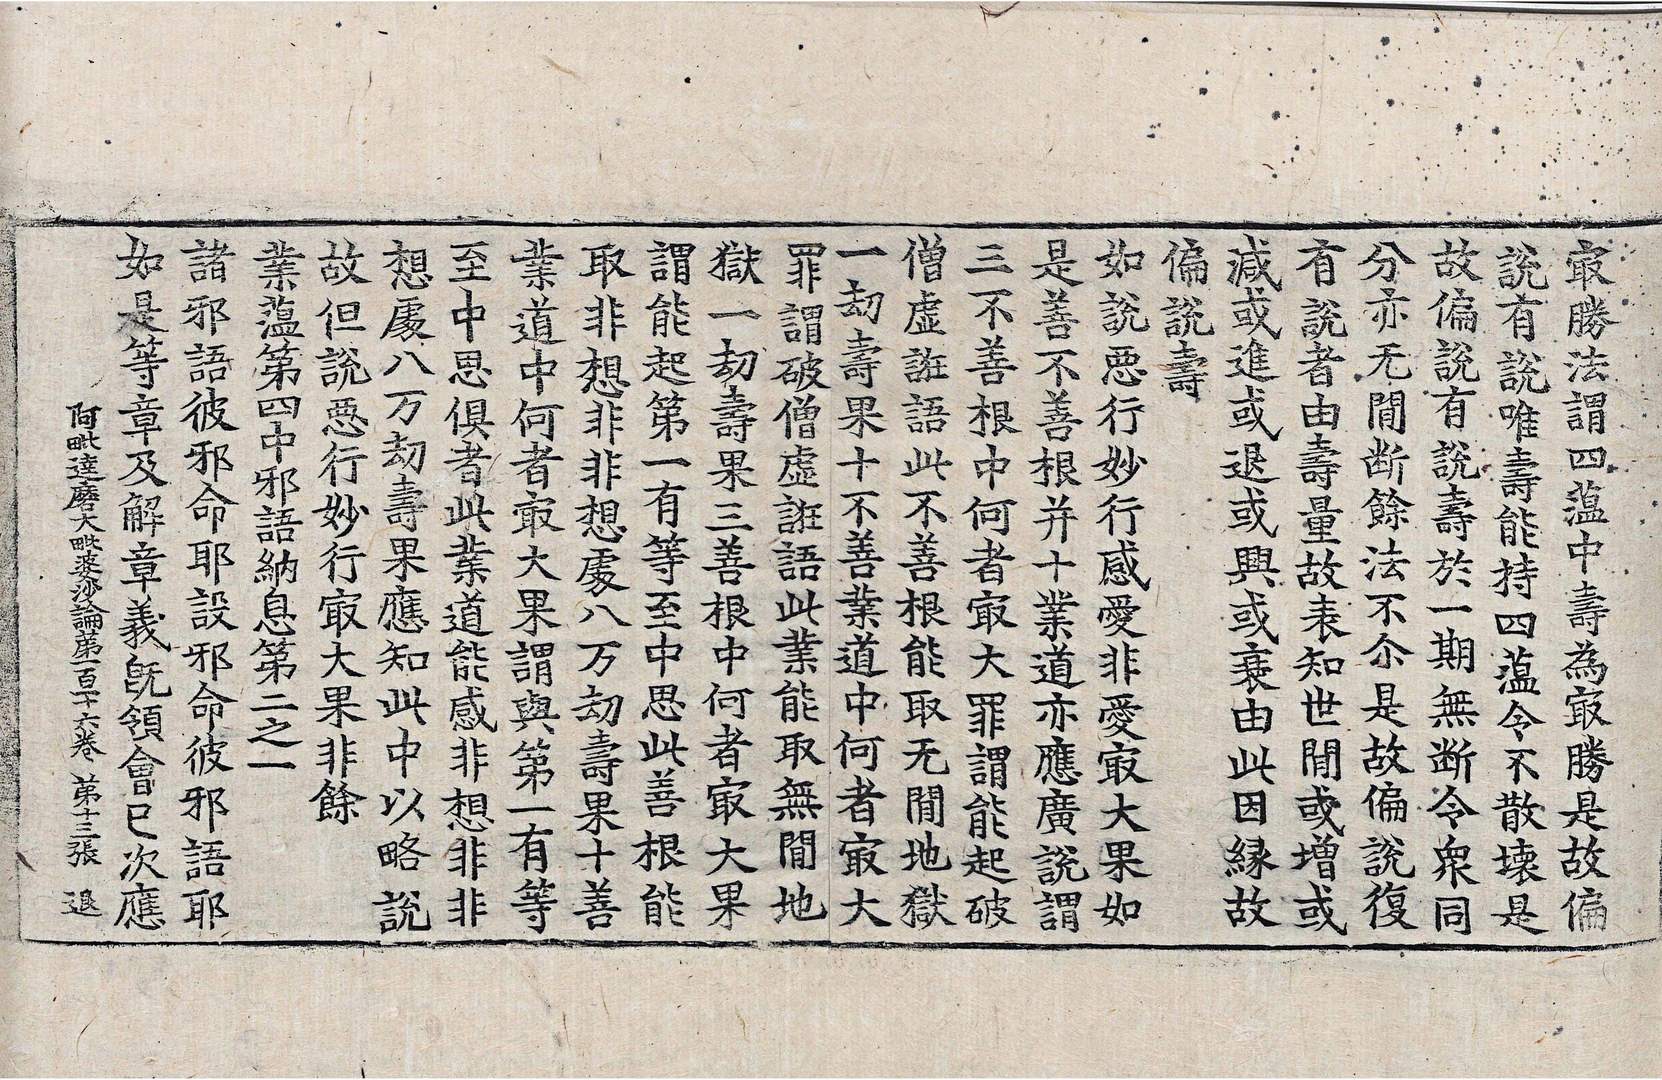 冣勝法謂四蕰中壽為冣勝是故偏
說有說唯壽能持四蕰令不散壊是
故偏說有說壽於一期無断令衆同
分亦无間断餘法不尒是故偏說復
有說者由壽量故表知世間或增或
減或進或退或興或衰由此因緣故
偏說壽
如說惡行妙行感愛非愛冣大果如
是善不善根并十業道亦應廣說謂
三不善根中何者冣大罪謂能起破
僧虛誑語此不善根能取无間地獄
一劫壽果十不善業道中何者冣大
罪謂破僧虛誑語此業能取無間地
獄一劫壽果三善根中何者冣大果
謂能起第一有等至中思此善根能
取非想非非想處八万劫壽果十善
業道中何者冣大果謂與第一有等
至中思俱者此業道能感非想非非
想處八万劫壽果應知此中以略說
故但說惡行妙行冣大果非餘
業蕰第四中邪語納息第二之一
諸邪語彼邪命耶設邪命彼邪語耶
如是等章及解章義旣領會已次應
阿毗達磨大毗婆沙論第一百十六卷 第十三張 退